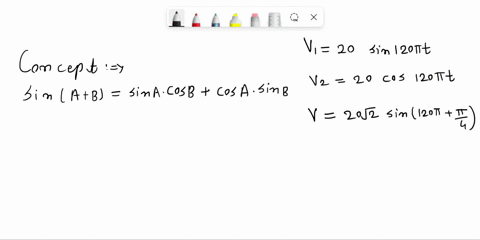 Concept :→
sin(A+B) = sinA·cosB + cosA·sinB
V₁ = 20 sin 120πt
V₂ = 20 cos 120πt
V = 20√2 sin(120π + π/4)